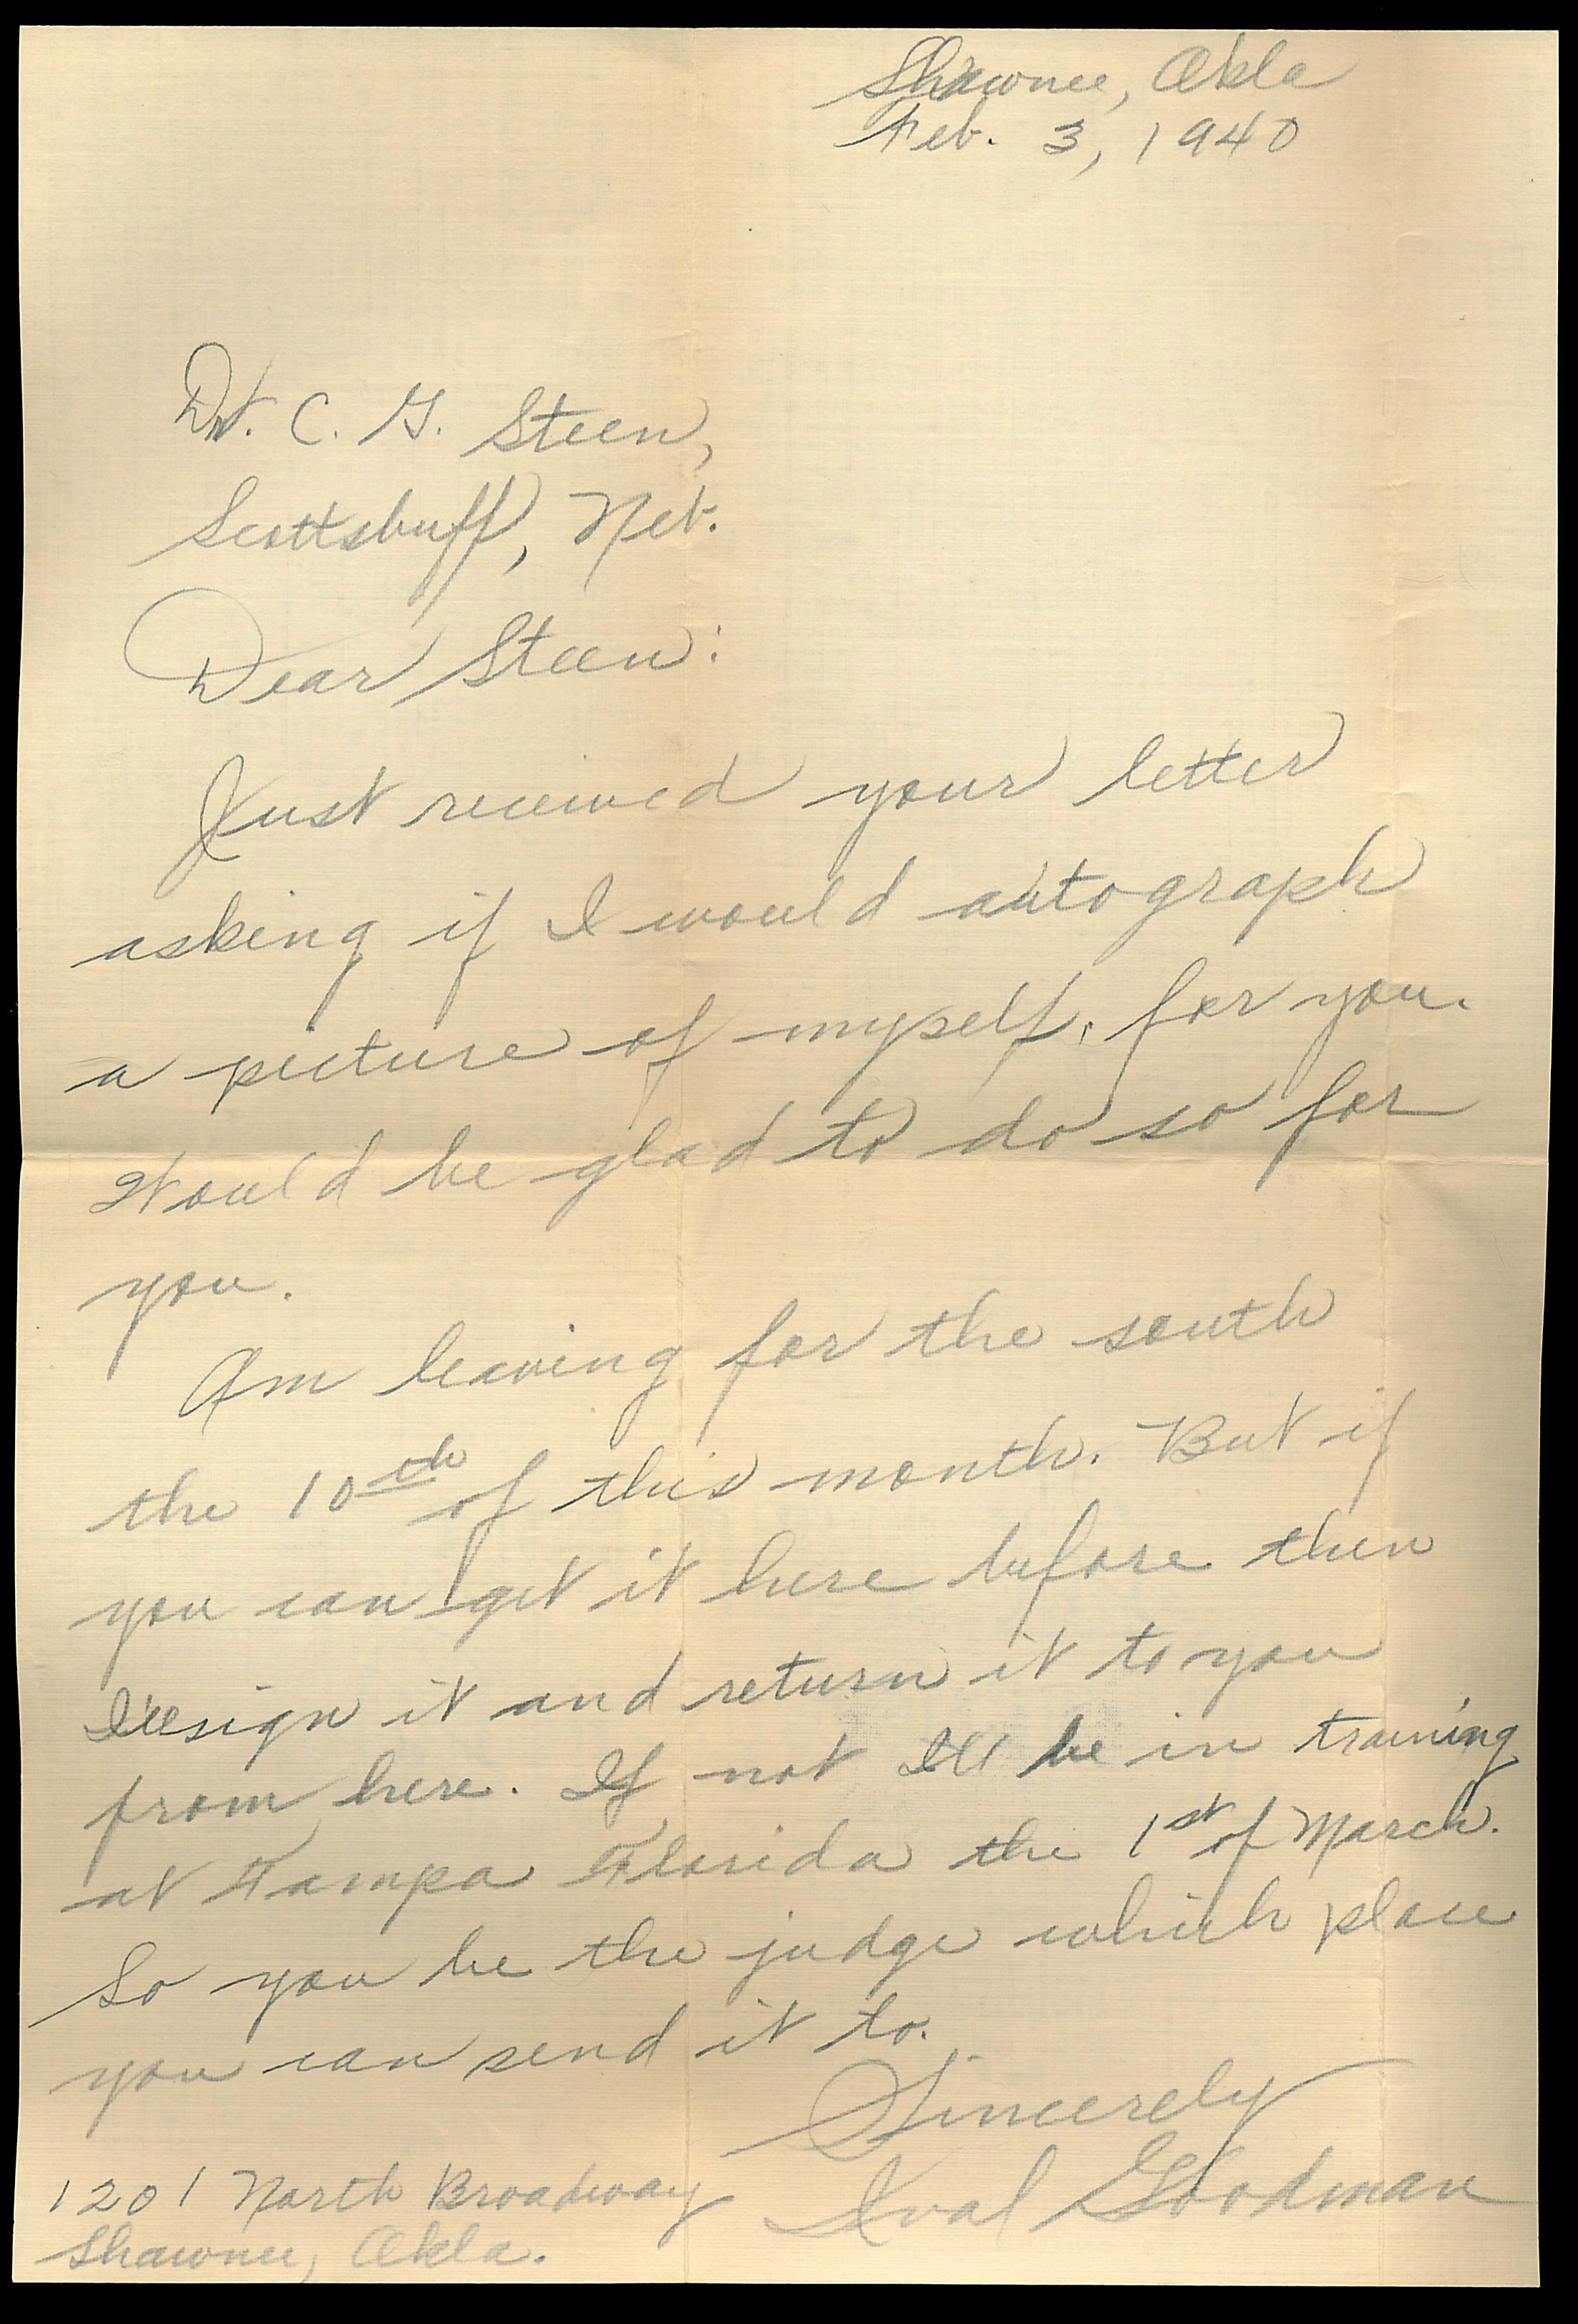 Shawnee, Okla
Feb. 3, 1940
Dr. C. G. Steen,
Scottsbuff, Neb.
Dear Steen:
Just received your letter
asking if I would autograph
a picture of myself, for you.
Would be glad to do so for
you.
Am leaving for the south
the 10th of this month. But if
you can get it here before then
I'll sign it and return it to you
from here. If not I'll be in training
at Tampa Florida the 1st of March.
So you be the judge which place
you can send it to.
Sincerely
Ival Goodman
1201 North Broadway
Shawnee, Okla.